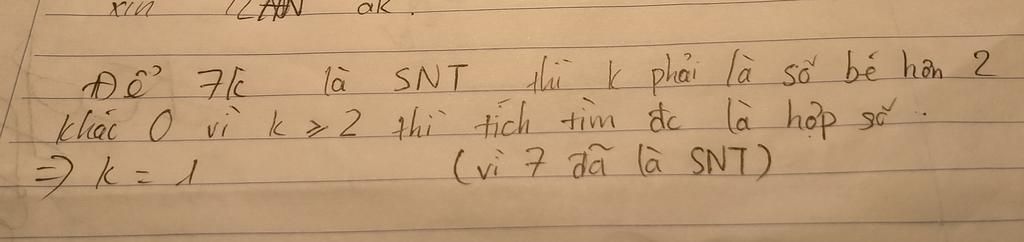 xin ak.
Để 7k là SNT thì k phải là số bé hơn 2
khác 0 vì k ≥ 2 thì tích tìm đc là hợp số.
=> k = 1 (vì 7 đã là SNT)